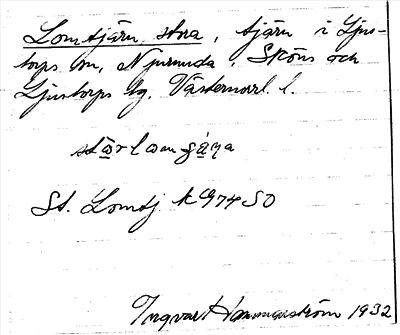 Lomtjärn, stora, tjärn i Ljus-
torps sn, Njurunda, Sköns och
Ljustorps tg. Västernorrl. l.
St. Lomtj. k G74 SO
Ingvar Hammarström 1932